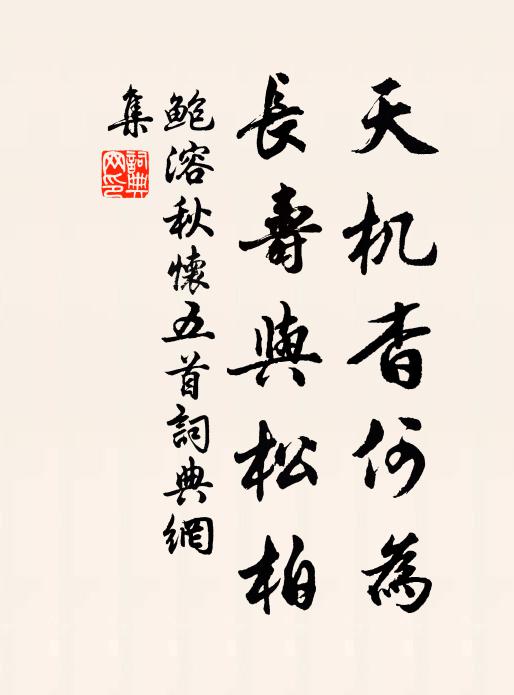 天机杳何為
長壽與松柏
鮑溶秋懷五首詞典網
集
詞典
网印